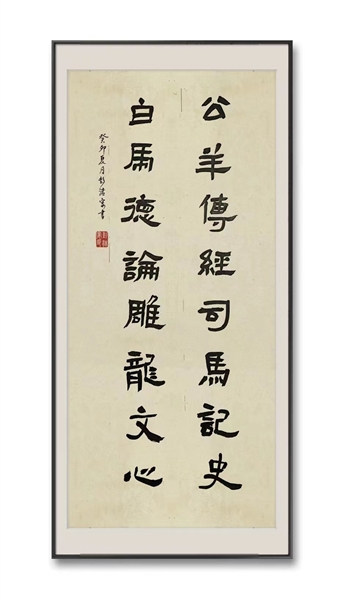 公羊傳經司馬記史
白馬德論雕龍文心
癸卯夏月彭浩雲書